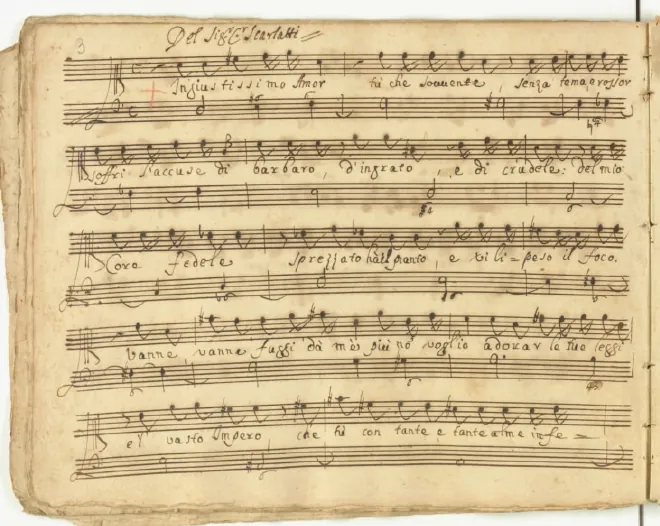 3
Del Sig.r Scarlatti
Ingiustissimo Amor tù che souuente senza tema e rossor
soffri l'accuse di barbaro, d'ingrato, e di crudele: del mio
Core fedele sprezzato hai'l pianto, e vili=peso il foco.
Vanne vanne fuggi da me più nõ voglio adorar le tue leggi
e'l vasto Impero, che tù con tante e tante alme infe=